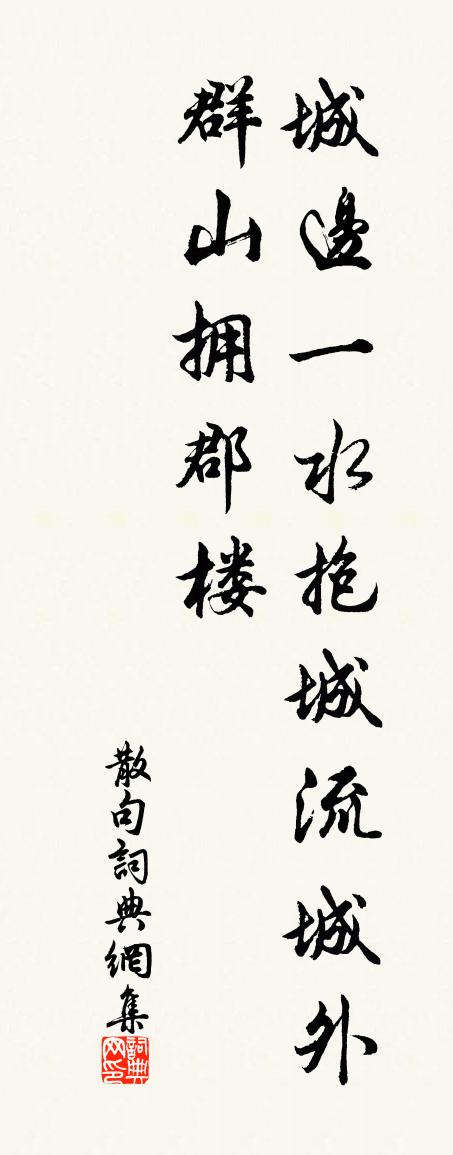 城邊一水抱城流城外
群山拥郡楼
散句詞典網集
詞典
网印